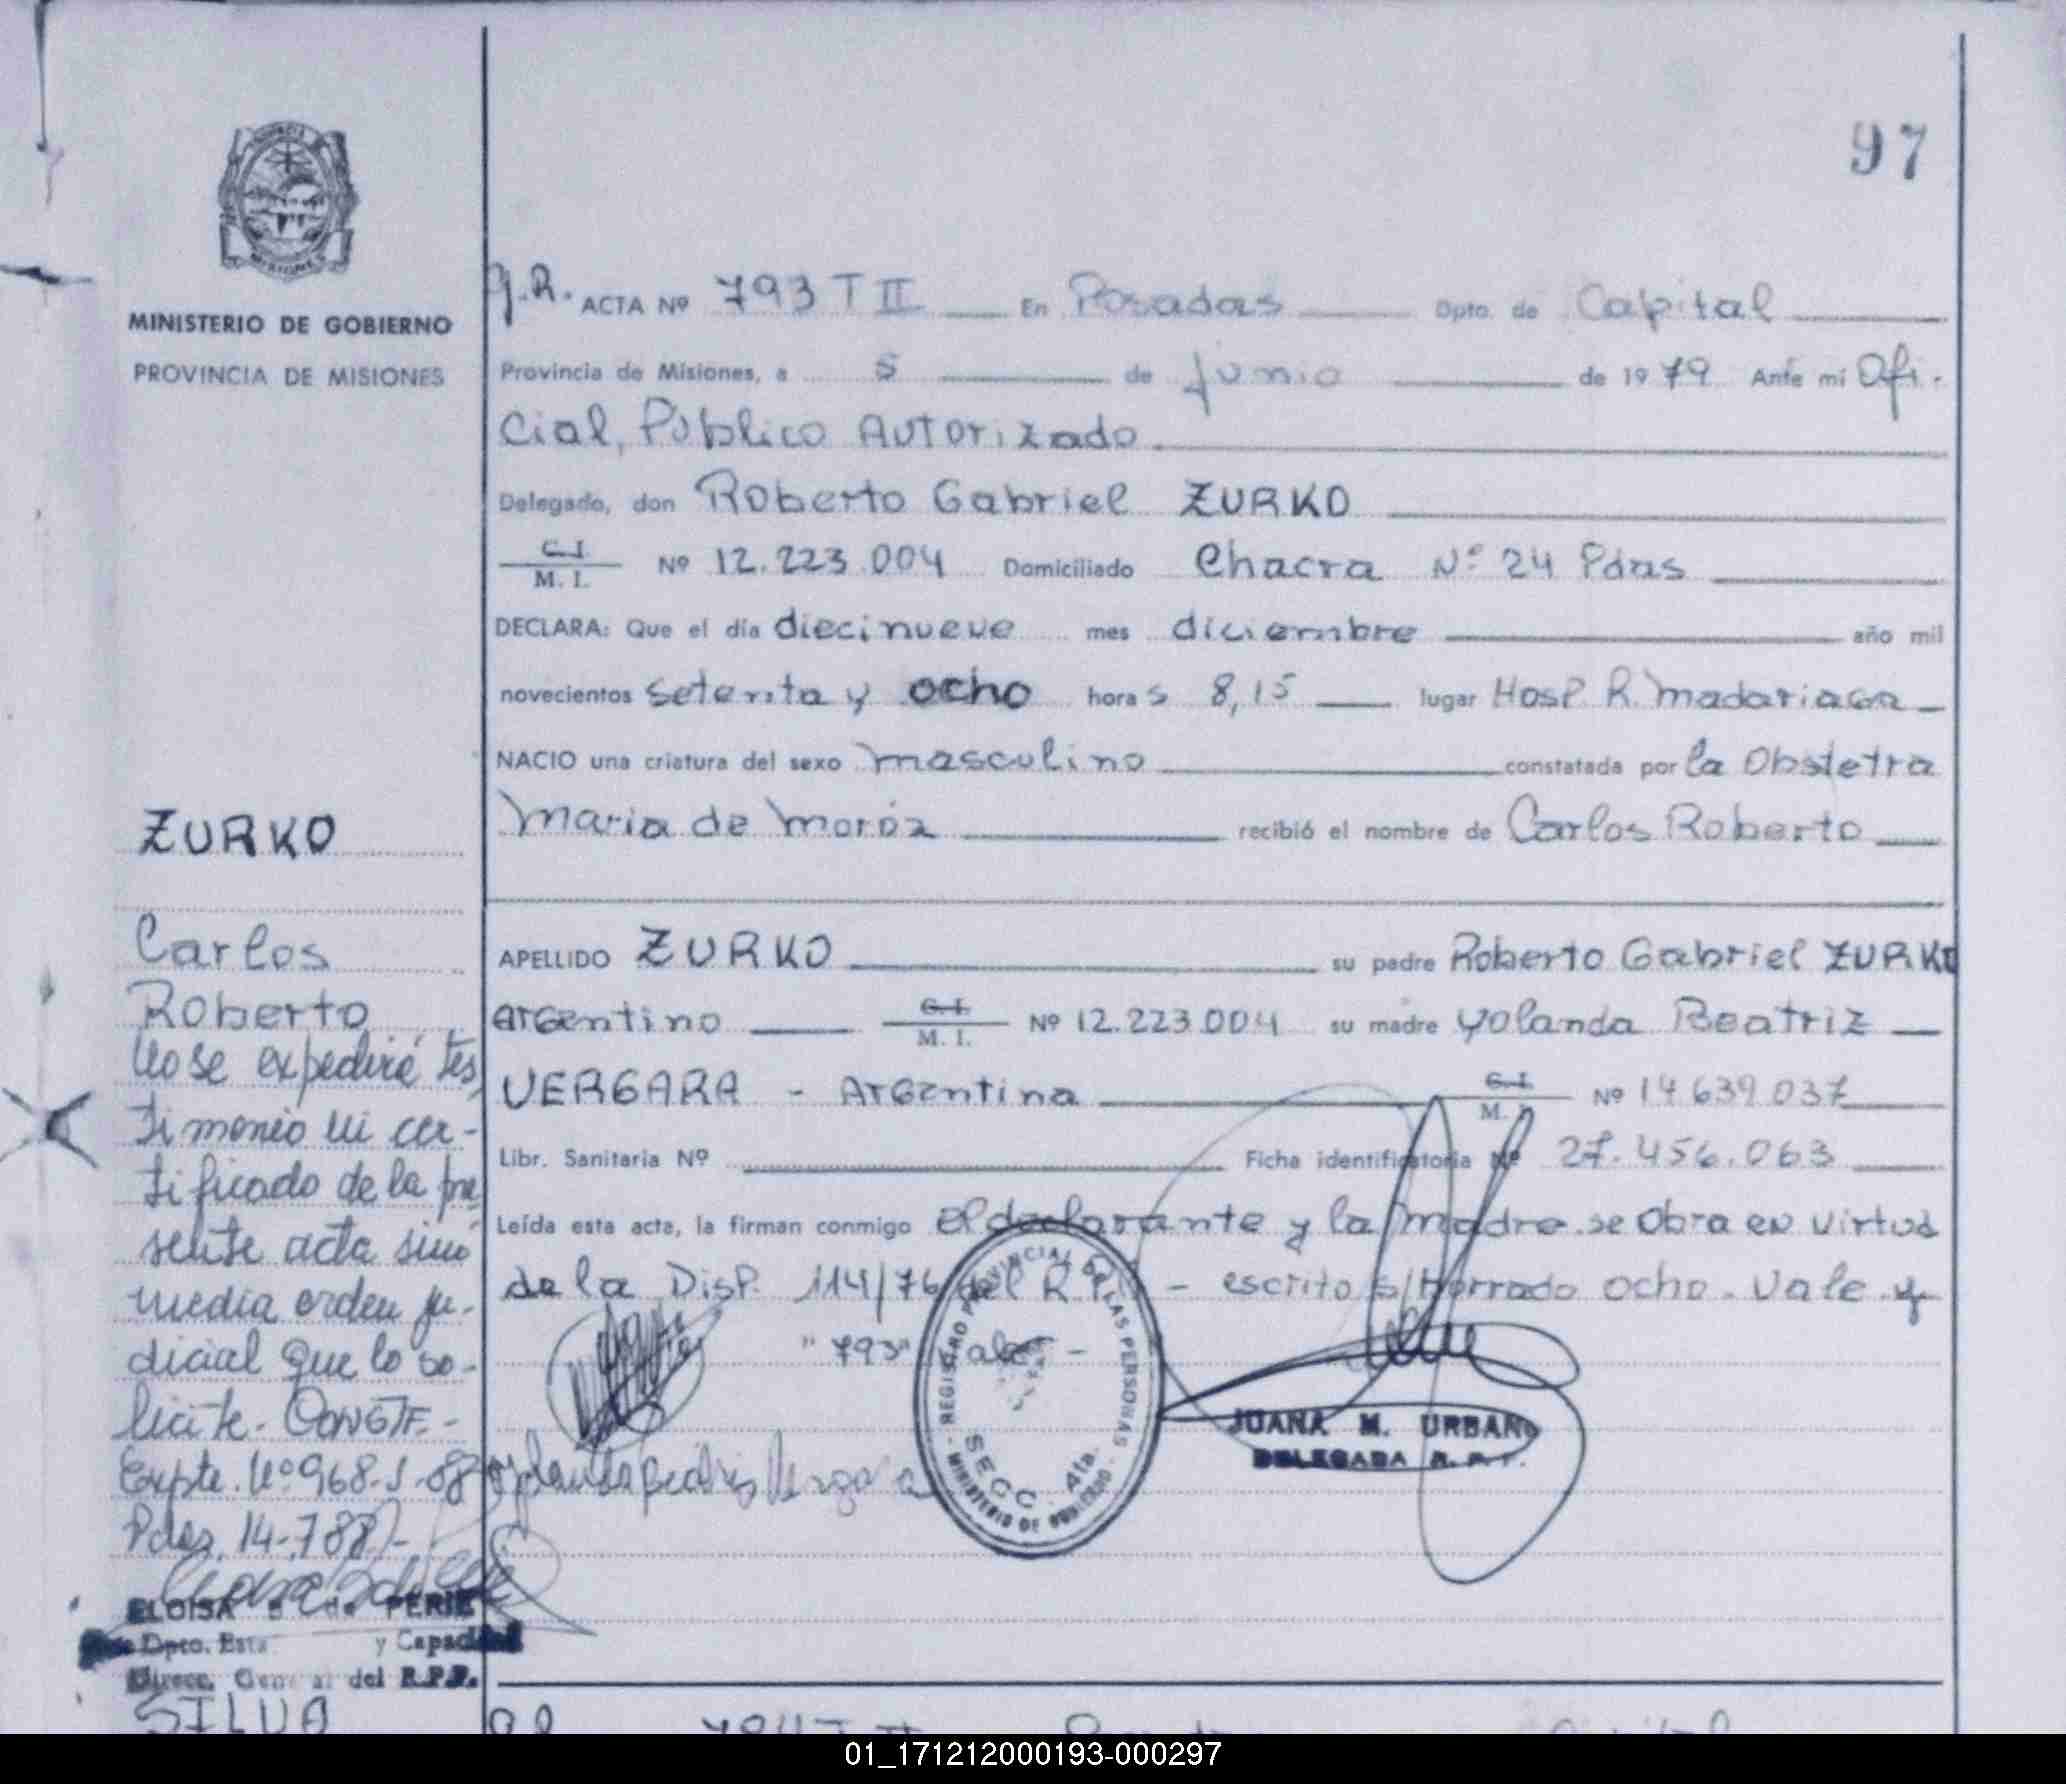 97
MINISTERIO DE GOBIERNO
PROVINCIA DE MISIONES
G.R. ACTA Nº 793 T II En Posadas Dpto. de Capital
Provincia de Misiones, a 5 de junio de 1979 Ante mi Ofi-
cial, Público Autorizado
Delegado, don Roberto Gabriel ZURKO
C.I. M. I. Nº 12.223.004 Domiciliado Chacra Nº 24 Pdas
DECLARA: Que el día diecinueve mes diciembre año mil
novecientos setenta y ocho hora s 8,15 lugar Hosp. R. Madariaga
NACIO una criatura del sexo masculino constatada por la Obstetra
Maria de Moroz recibió el nombre de Carlos Roberto
APELLIDO ZURKO su padre Roberto Gabriel ZURKO
Argentino C.I. M. I. Nº 12.223.004 su madre Yolanda Beatriz
VERGARA - Argentina C.I. M. I. Nº 14.639.037
Libr. Sanitaria Nº Ficha identificatoria Nº 27.456.063
Leída esta acta, la firman conmigo el declarante y la madre. se obra en virtud
de la Disp. 114/76 del R.P. - escrito s/borrado ocho. Vale y
"793" vale -
ZURKO
Carlos
Roberto
No se expedirá tes
timonio ni cer-
tificado de la pre
sente acta sino
media orden ju-
dicial que lo so-
licite. CONSTE.-
Expte. Nº 968-J-88
Pdas, 14-7-88/-
ELOISA de PERIE
Dpto. Esta y Capacidad
Direcc. General del R.P.P.
REGISTRO PROVINCIAL DE LAS PERSONAS
SECC. 4ta.
MINISTERIO DE GOBIERNO
JUANA M. URBANO
DELEGADA R. P. P.
SILVA
01_171212000193-000297